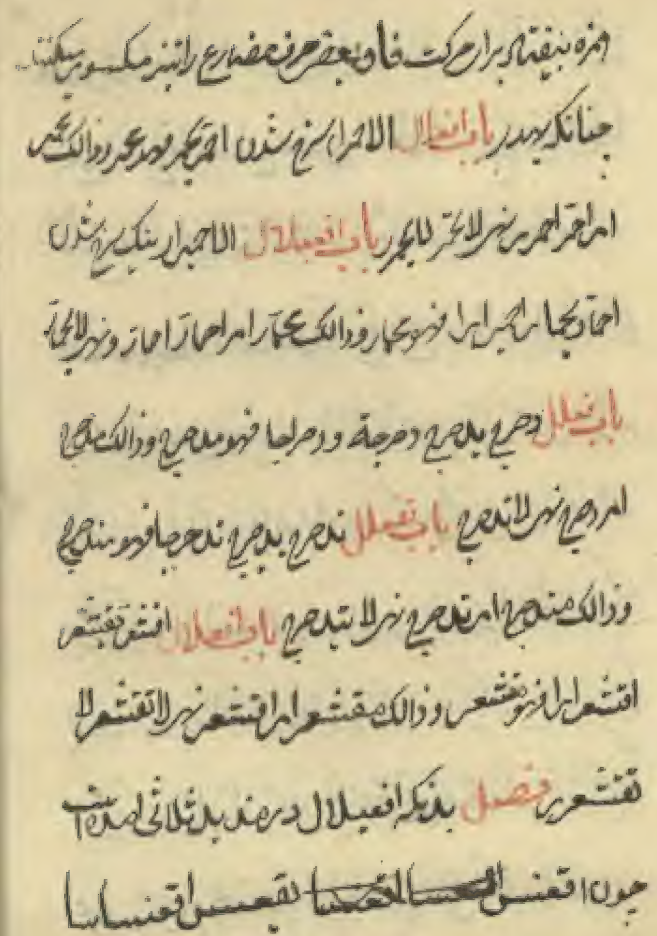 همزه بیفتاد برای حرکت فا و بعضی حرف مضارع را نیز مکسور میکنند
چنانکه یهدر باب افعلال الاحمرار سرخ شدن احمر یحمر فهو محمر وذالک محمر
امر احمر احمرر نهی لا یحمر لا یحمرر باب افعیلال الاحمیرار نیک سرخ شدن
احمار یحمار احمیرارا فهو محمار وذالک محمار امر احمار احمارر ونهی لا یحمار
باب فعلل دحرج یدحرج دحرجة ودحراجا فهو مدحرج وذالک مدحرج
امر دحرج نهی لا تدحرج باب تفعلل تدحرج یتدحرج تدحرجا فهو متدحرج
وذالک متدحرج امر تدحرج نهی لا یتدحرج باب افعلال اقشعر یقشعر
اقشعرارا فهو مقشعر وذالک مقشعر امر اقشعر نهی لا تقشعر لا
تقشعرر فصل بدنکه افعیلال در مزید ثلاثی امده است
چون اقعنسس یقعنسس اقعنساسا